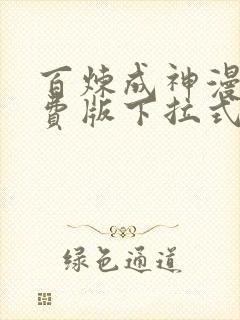 百炼成神漫
费版下拉式
绿色通道